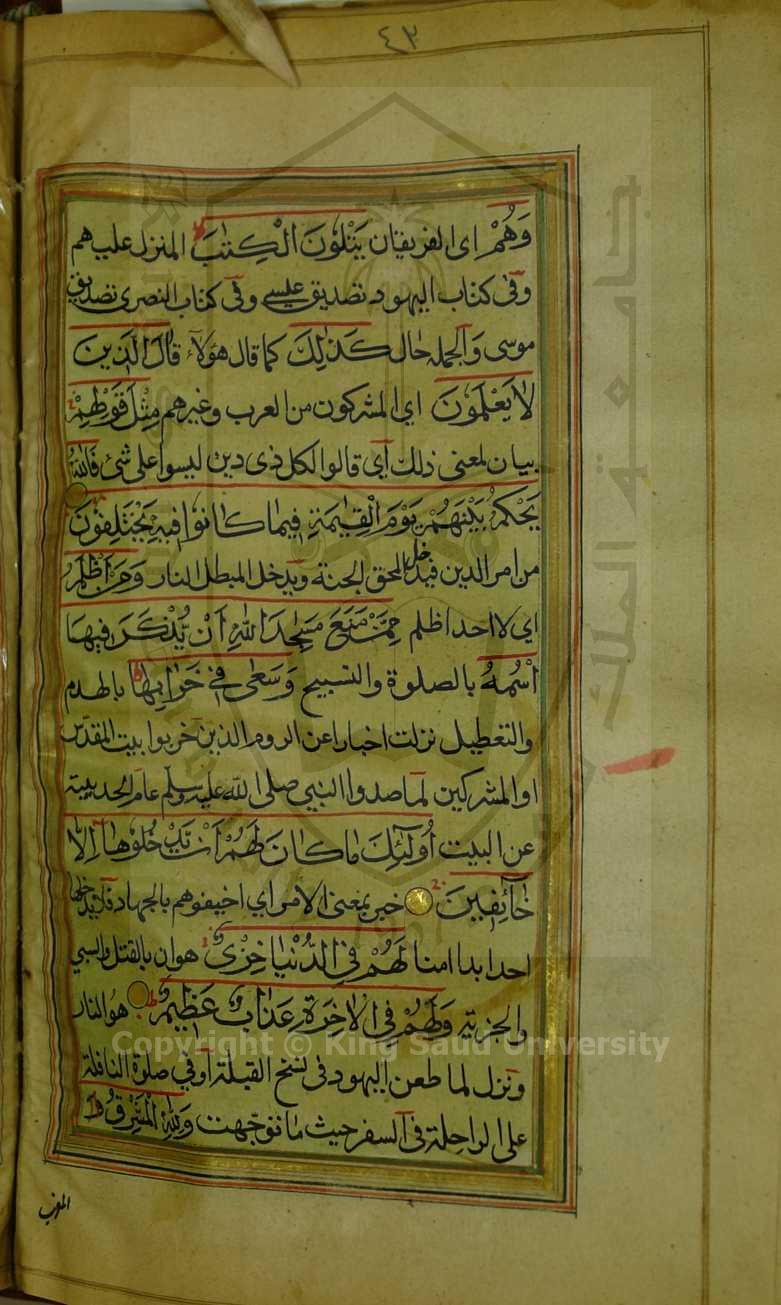 ٤٣
وَهُمْ اى الفريقان يَتْلُونَ الْكِتٰبَ المنزل عليهم
وفى كتاب اليهود تصديق عيسى وفى كتاب النصرى تصديق
موسى والجمله حال كَذٰلِكَ كما قال هؤلاء قَالَ الَّذِينَ
لَا يَعْلَمُونَ اي المشركون من العرب وغيرهم مِثْلَ قَوْلِهِمْ
بيان لمعنى ذلك آي قالوا لكل ذى دين ليسوا على شئ فَاللّٰهُ
يَحْكُمُ بَيْنَهُمْ يَوْمَ الْقِيٰمَةِ فِيمَا كَانُوا فِيهِ يَخْتَلِفُونَ
من امر الدين فيدخل المحق الجنة ويدخل المبطل النار وَمَنْ أَظْلَمُ
اي لا احد اظلم مِمَّنْ مَنَعَ مَسٰجِدَ اللّٰهِ اَنْ يُذْكَرَ فِيهَا
اسْمُهُ بالصلوة والتسبيح وَسَعٰى فِي خَرَابِهَا بالهدم
والتعطيل نزلت اخبارا عن الروم الذين خربوا بيت المقدس
او المشركين لما صدوا النبي صلى اللّٰه عليه وسلم عام الحديبية
عن البيت أُولٰٓئِكَ مَا كَانَ لَهُمْ اَنْ يَدْخُلُوهَا اِلَّا
خَآئِفِينَ خبر بمعنى الامر اي اخيفوهم بالجهاد فلا يدخلها
احد ابدا امنا لَهُمْ فِي الدُّنْيَا خِزْيٌ هوان بالقتل والسبي
والجزية وَلَهُمْ فِي الْاٰخِرَةِ عَذَابٌ عَظِيمٌ هو النار
ونزل لما طعن اليهود فى نسخ القبلة آو في صلوة النافلة
على الراحلة فى السفر حيث ما توجهت وَلِلّٰهِ الْمَشْرِقُ
المغرب
جامعة الملك سعود
Copyright © King Saud University